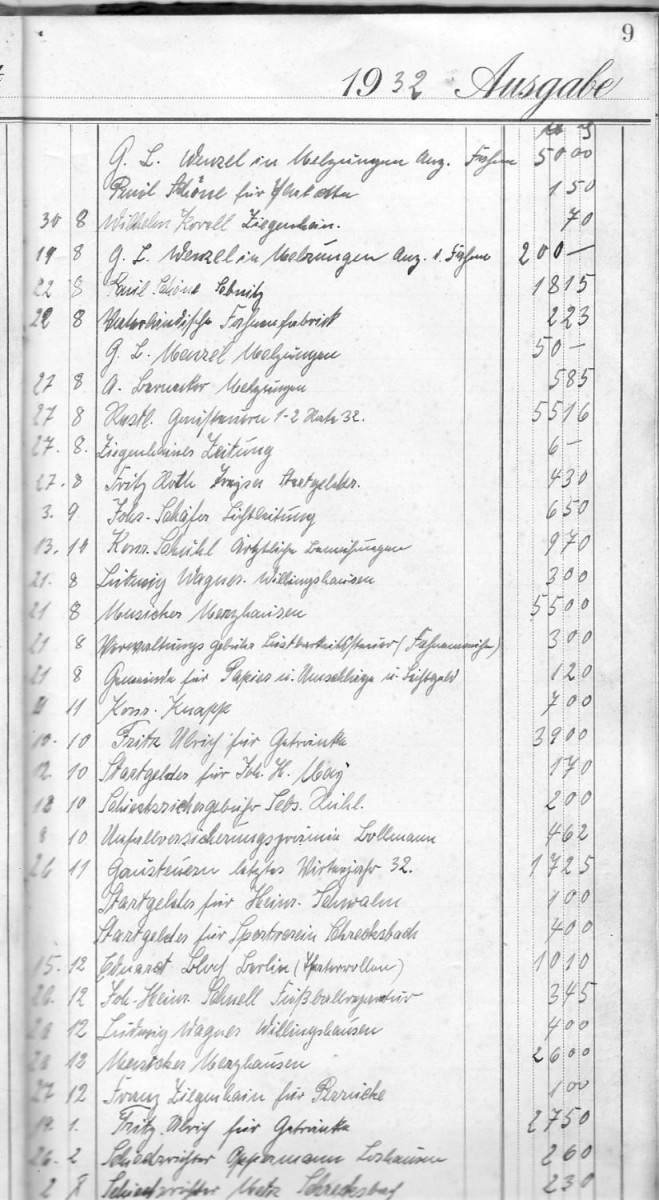 9
1932 Ausgabe
M S
G. L. Wenzel in Melzungen Anz. Fahne 50 00
Emil Schöne für 1 50
30 8 Wilhelm Korell Ziegenhain. 70
19 8 G. L. Wenzel in Melzungen Anz. 1. Fahne 200 —
22 8 Emil Schöne Sebnitz 18 15
22 8 Vaterländische Fahnenfabrick 2 23
G. L. Menzel Melzungen 50 —
27 8. A. Bernecker Melzungen 5 85
27 8 Restl. Gausteuern 1-2 32. 55 16
27. 8. Ziegenhainer Zeitung 6 —
27. 8 Fritz Roth Treysa Startgelder. 4 30
3. 9 Johs. Schäfer Lichtleitung 6 50
13. Konr. Schühl Ärtztliche Bemühungen 9 70
21. 8 Ludwig Wagner. Willingshausen 3 00
21 8 Musicker Merzhausen 55 00
21 8 Verwaltungs gebühr Lustbarkeitssteuer (Fahnenweihe) 3 00
21 8 Gemeinde für Papier u. Umschläge u. Lichtgeld 1 20
11 Konr. Knapp 7 00
10. 10 Fritz Ulrich für Getränke 39 00
12. 10 Startgelder für Joh. H. May 1 70
18 10 Schiedsrichtergebühr Sebs. Rühl. 2 00
8 10 Unfallversicherungsprämie Bollmann 4 62
26 11 Gausteuern letztes Vierteljahr 32. 17 25
Startgelder für Heinr. Schwalm 1 00
Startgelder für Sportverein Schrecksbach 4 00
15. 12 Eduard Bloch Berlin (Theaterrollen) 10 10
20. 12 Joh. Heinr. Schnell Fußballreparatur 3 45
20 12 Ludwig Wagner Willingshausen 4 00
20 12 Musicker Merzhausen 26 00
27 12 Franz Ziegenhain für Perücke 1 00
19. 1. Fritz. Ulrich für Getränke 27 50
26. 2 Schiedsrichter Oppermann Loshausen 2 60
2 Schiedsrichter Metz Schrecksbach 2 30